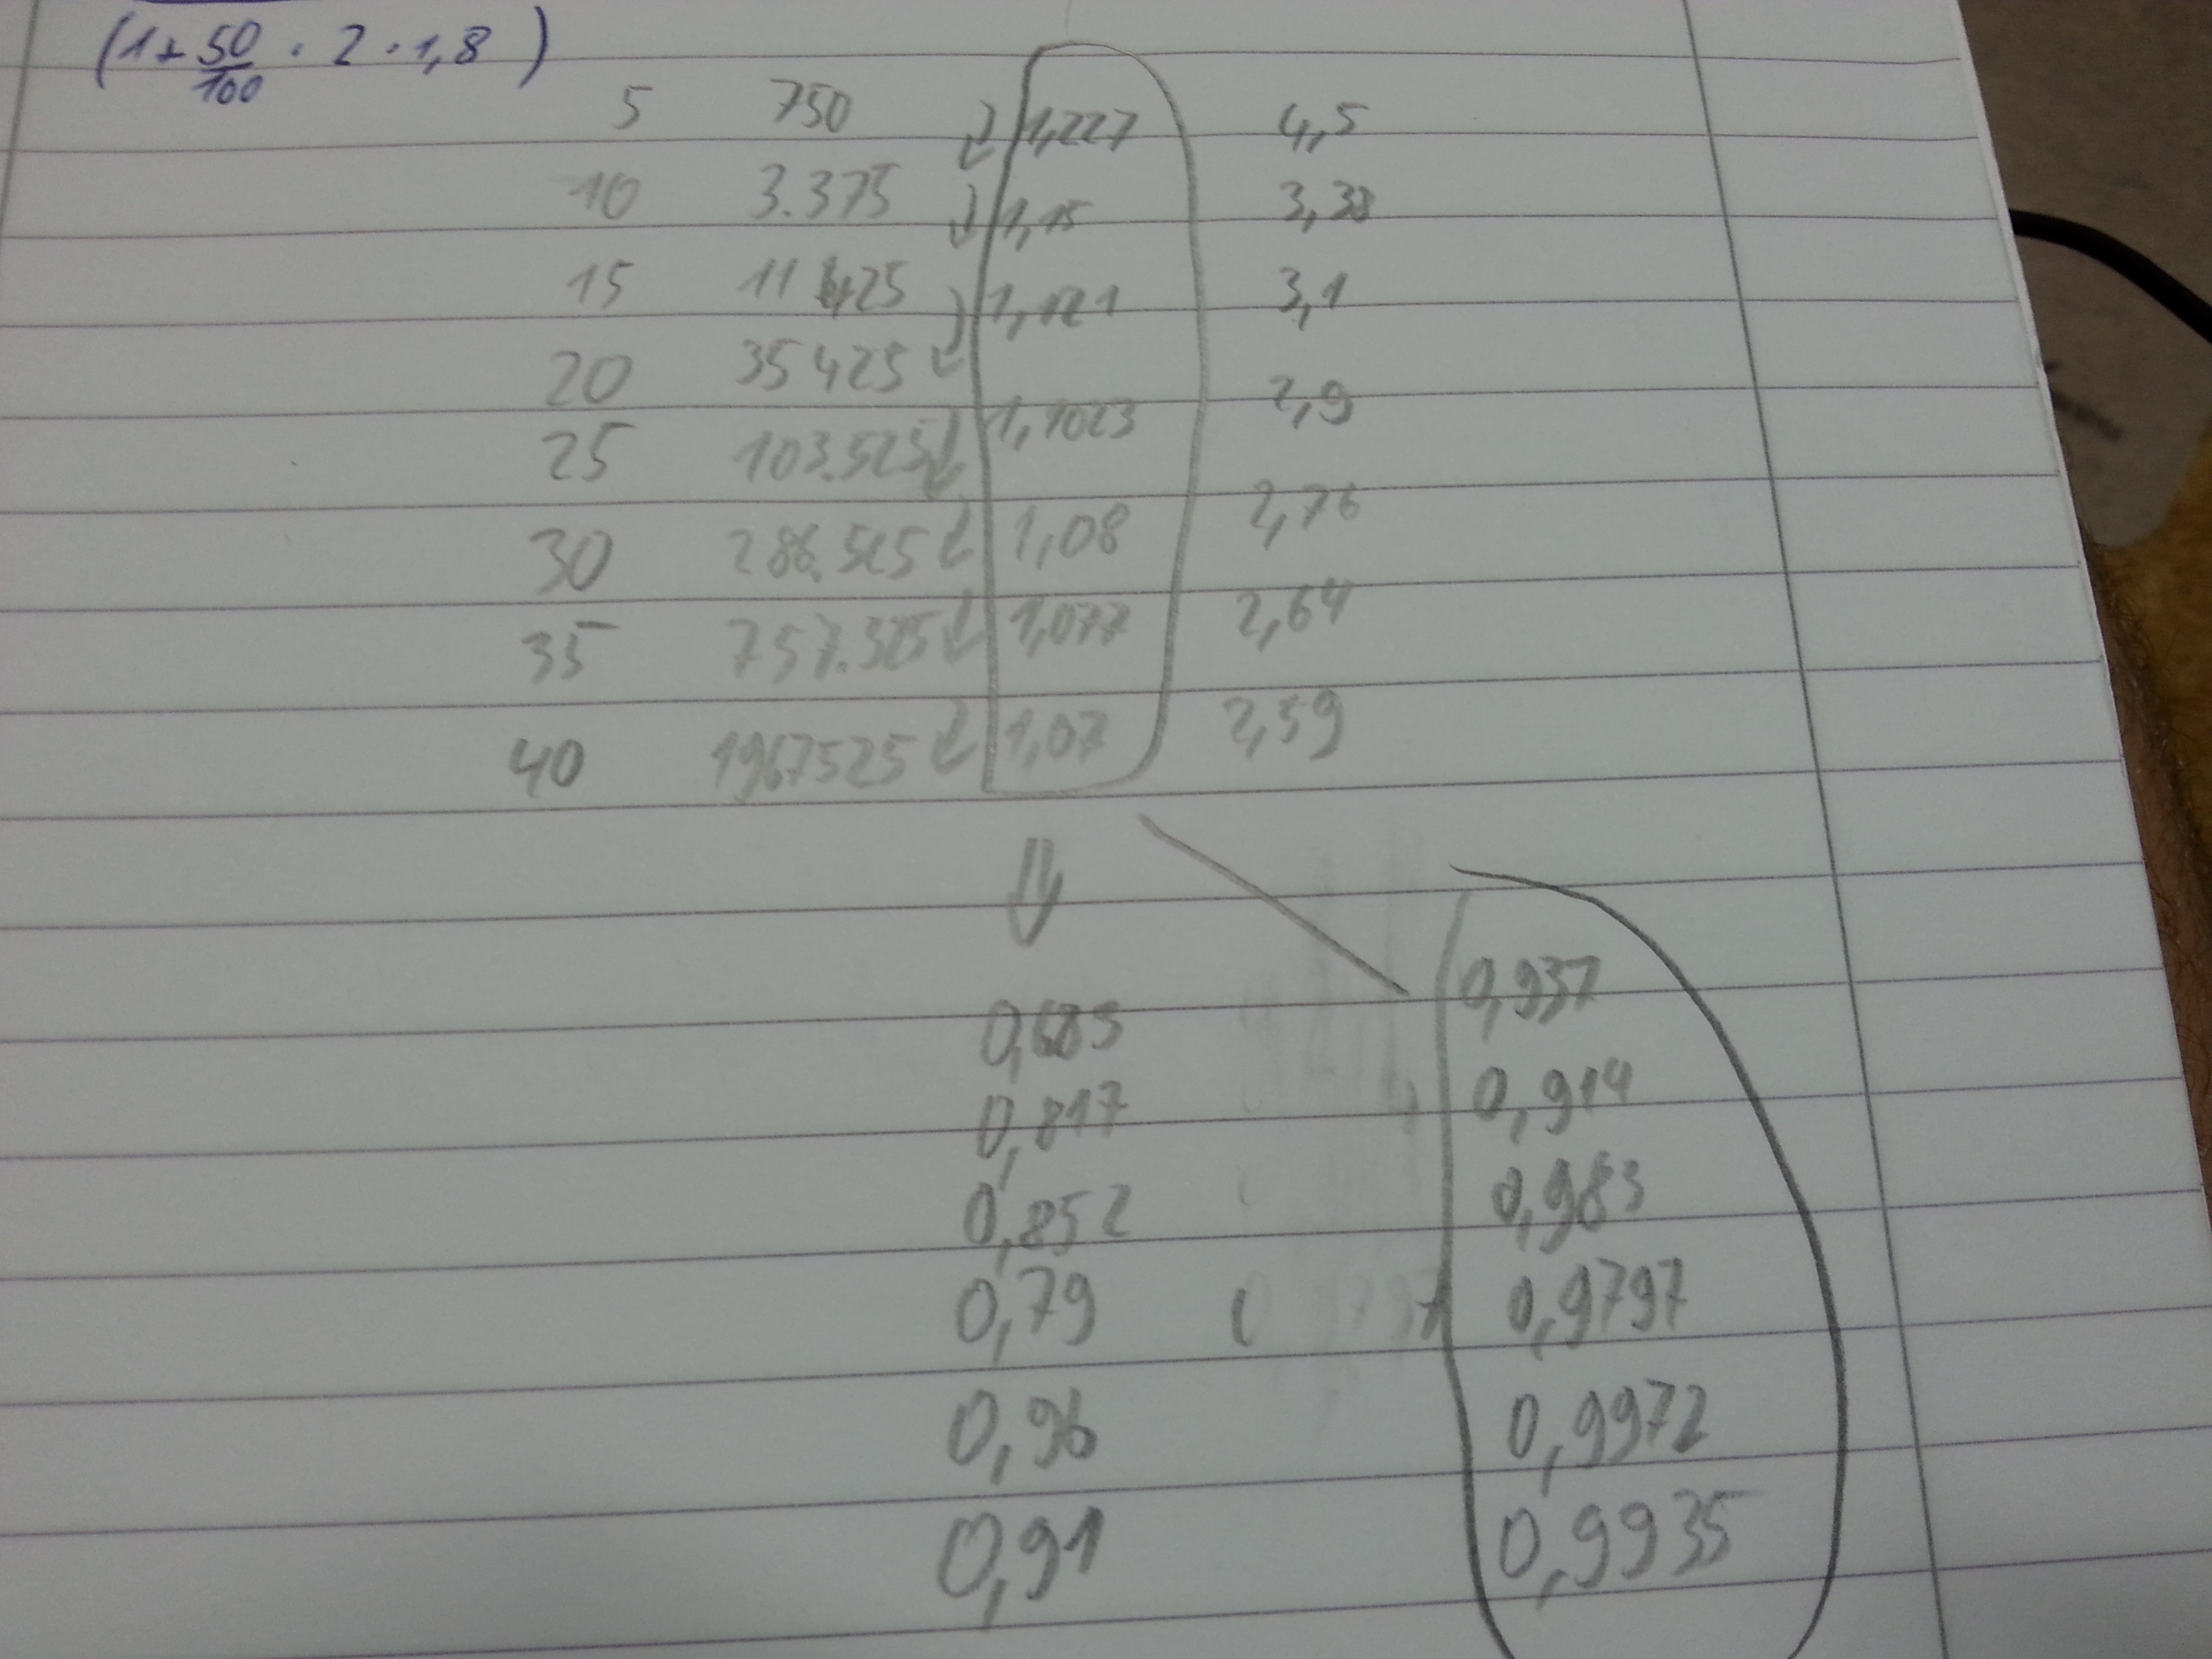 (1+ 50/100 · 2 · 1,8 )
5 750 1,227 4,5
10 3.375 1,15 3,38
15 11 625 1,121 3,1
20 35 425
25 103.525 1,1023 2,9
30 286.525 1,08 2,76
35 757.525 1,077 2,64
40 1967525 1,07 2,59
0,937
0,683
0,914
0,817
0,983
0,852
0,9797
0,79
0,9972
0,96
0,9935
0,91